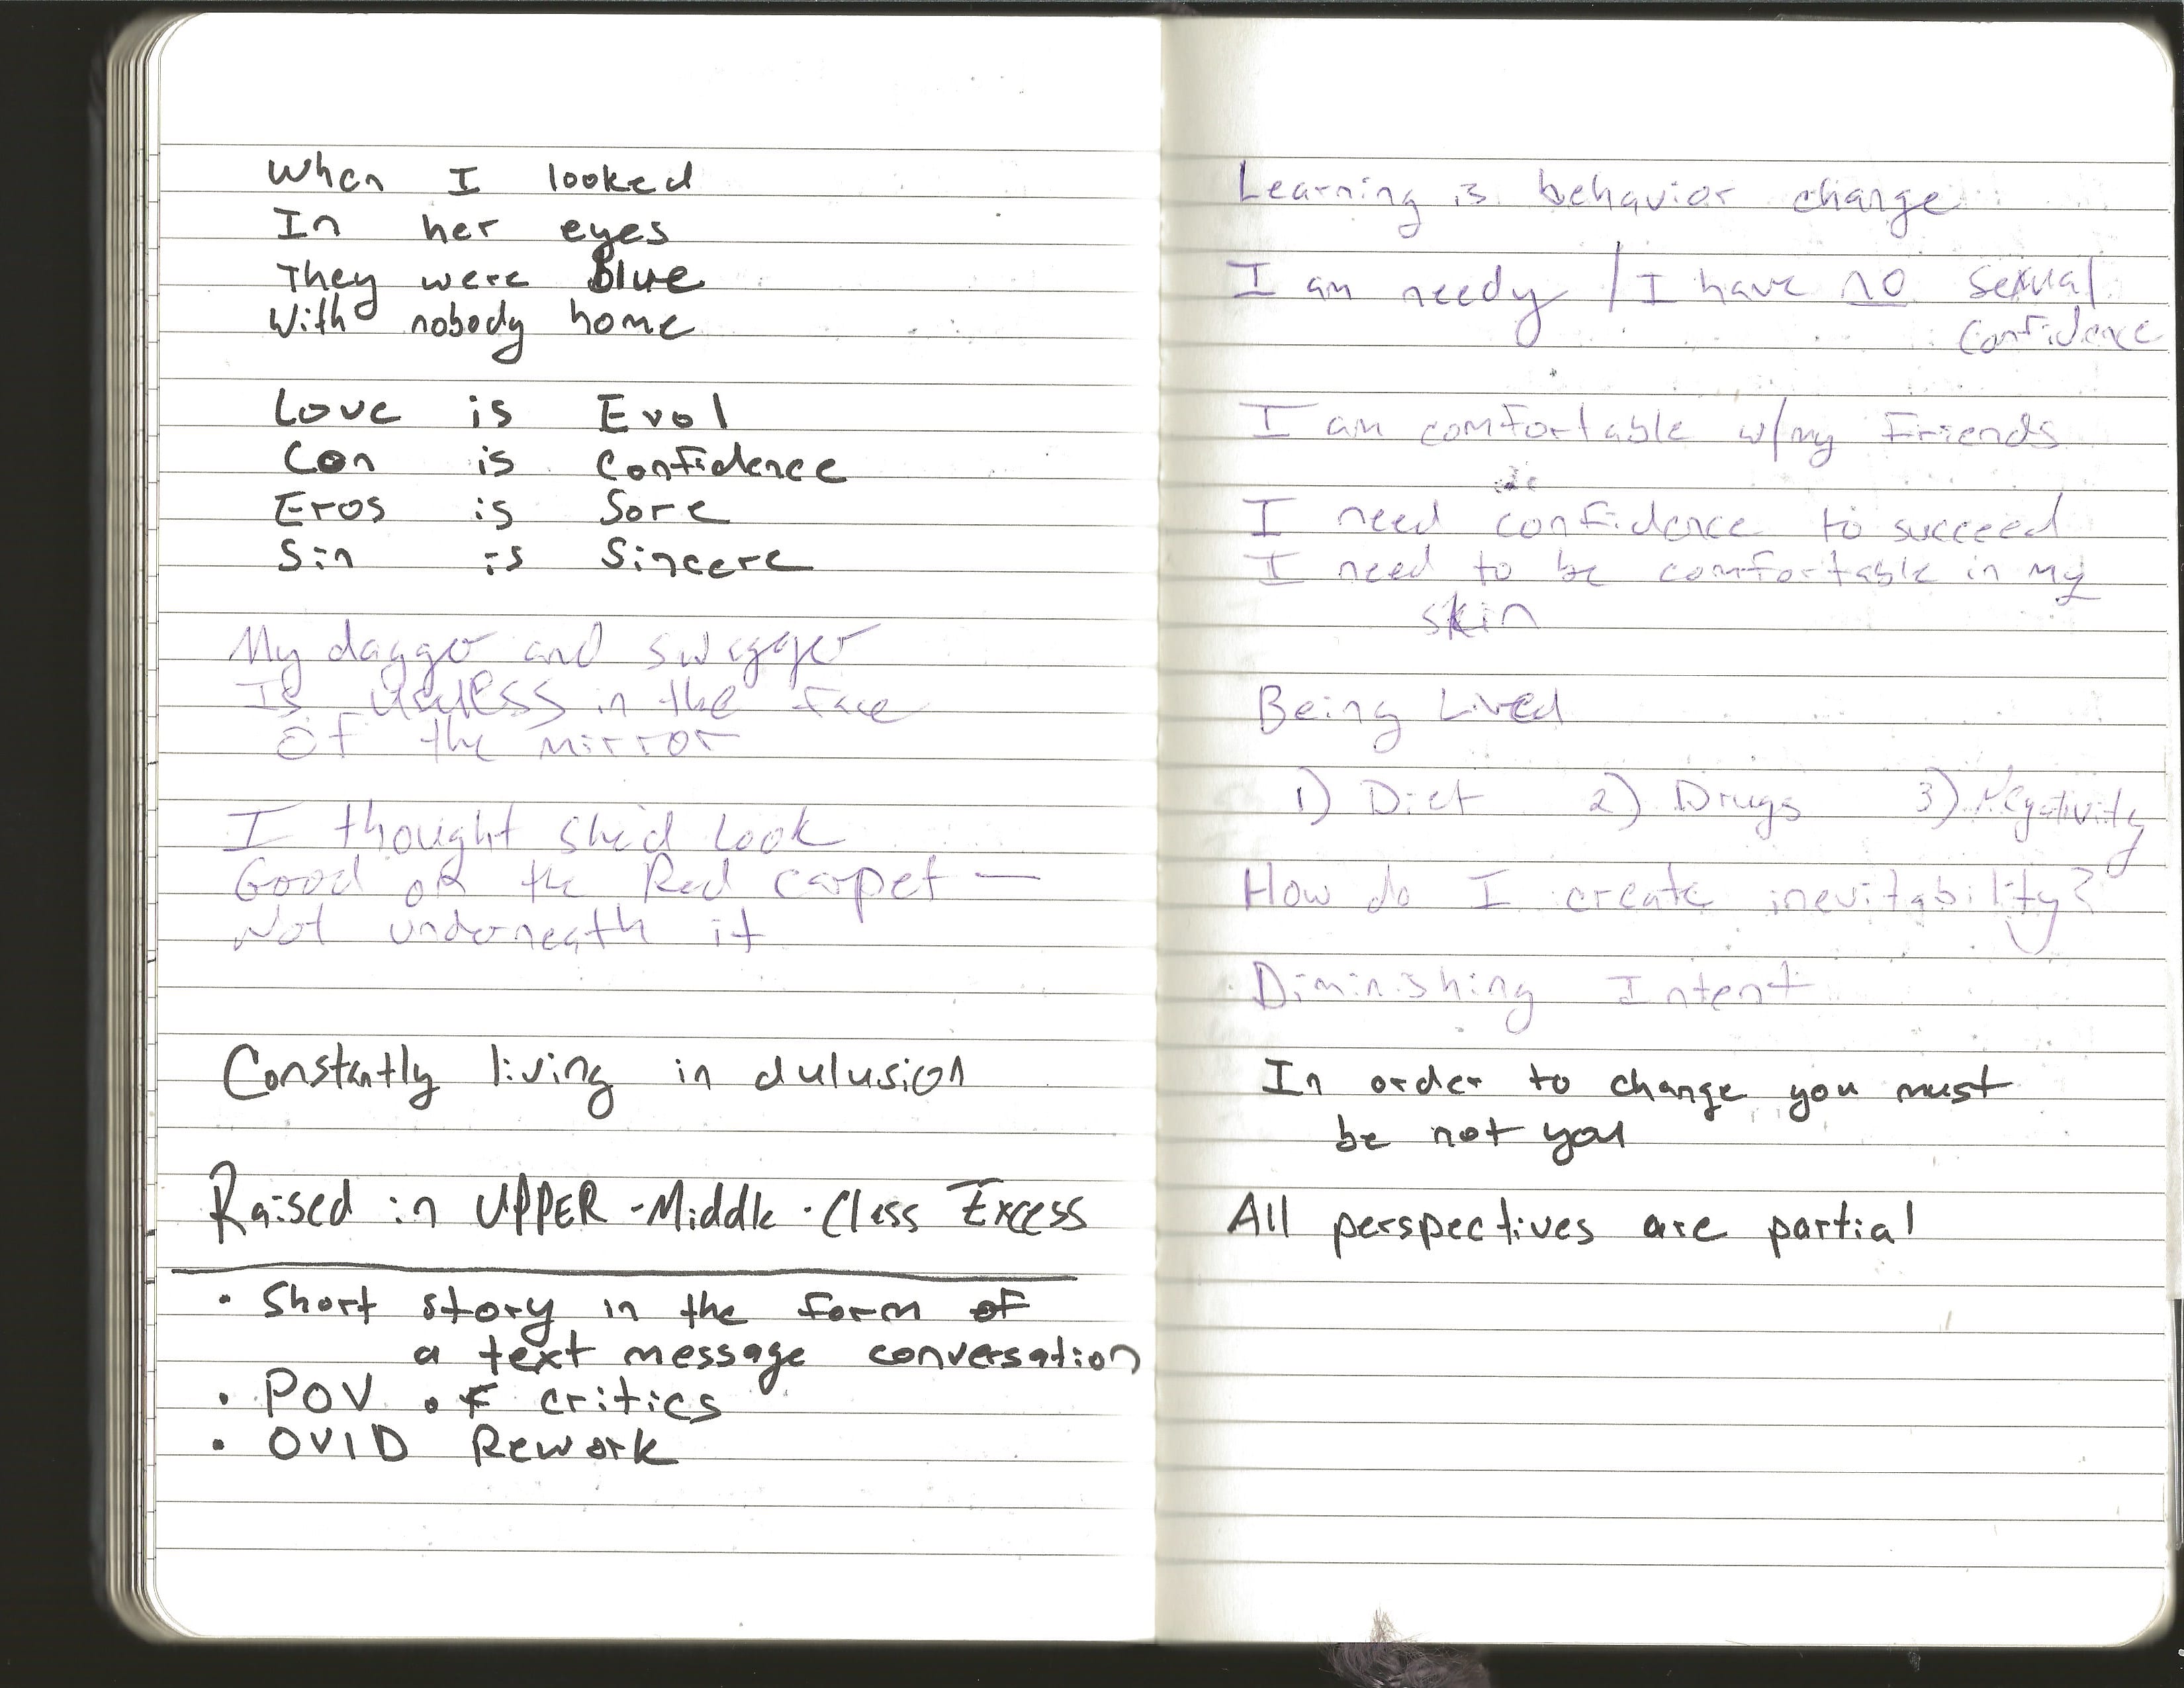 When I looked
In her eyes
They were Blue
With nobody home
Love is Evol
Con is Confidence
Eros is Sore
Sin is Sincere
My dagger and swagger
Is useless in the face
Of the mirror
I thought she'd Look
Good on the Red carpet —
Not underneath it
Constantly living in dulusion
Raised in UPPER-Middle-Class Excess
• Short story in the form of
a text message conversation
• POV of critics
• OVID Rework
Learning is behavior change
I am needy / I have no sexual
confidence
I am comfortable w/my Friends
I need confidence to succeed
I need to be comfortable in my
skin
Being Lived
1) Diet 2) Drugs 3) Negativity
How do I create inevitability?
Diminishing Intent
In order to change you must
be not you
All perspectives are partial